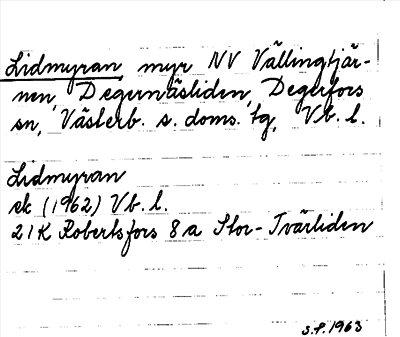 Lidmyran, myr NV Vällingtjär-
nen, Degernäsliden, Degerfors
sn, Västerb. s. doms. tg, Vb. l.
Lidmyran
ek (1962) Vb. l.
21K Robertsfors 8a Stor-Tvärliden
S.P. 1963